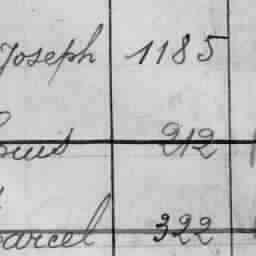 Joseph 1185
Louis 212
Marcel 322